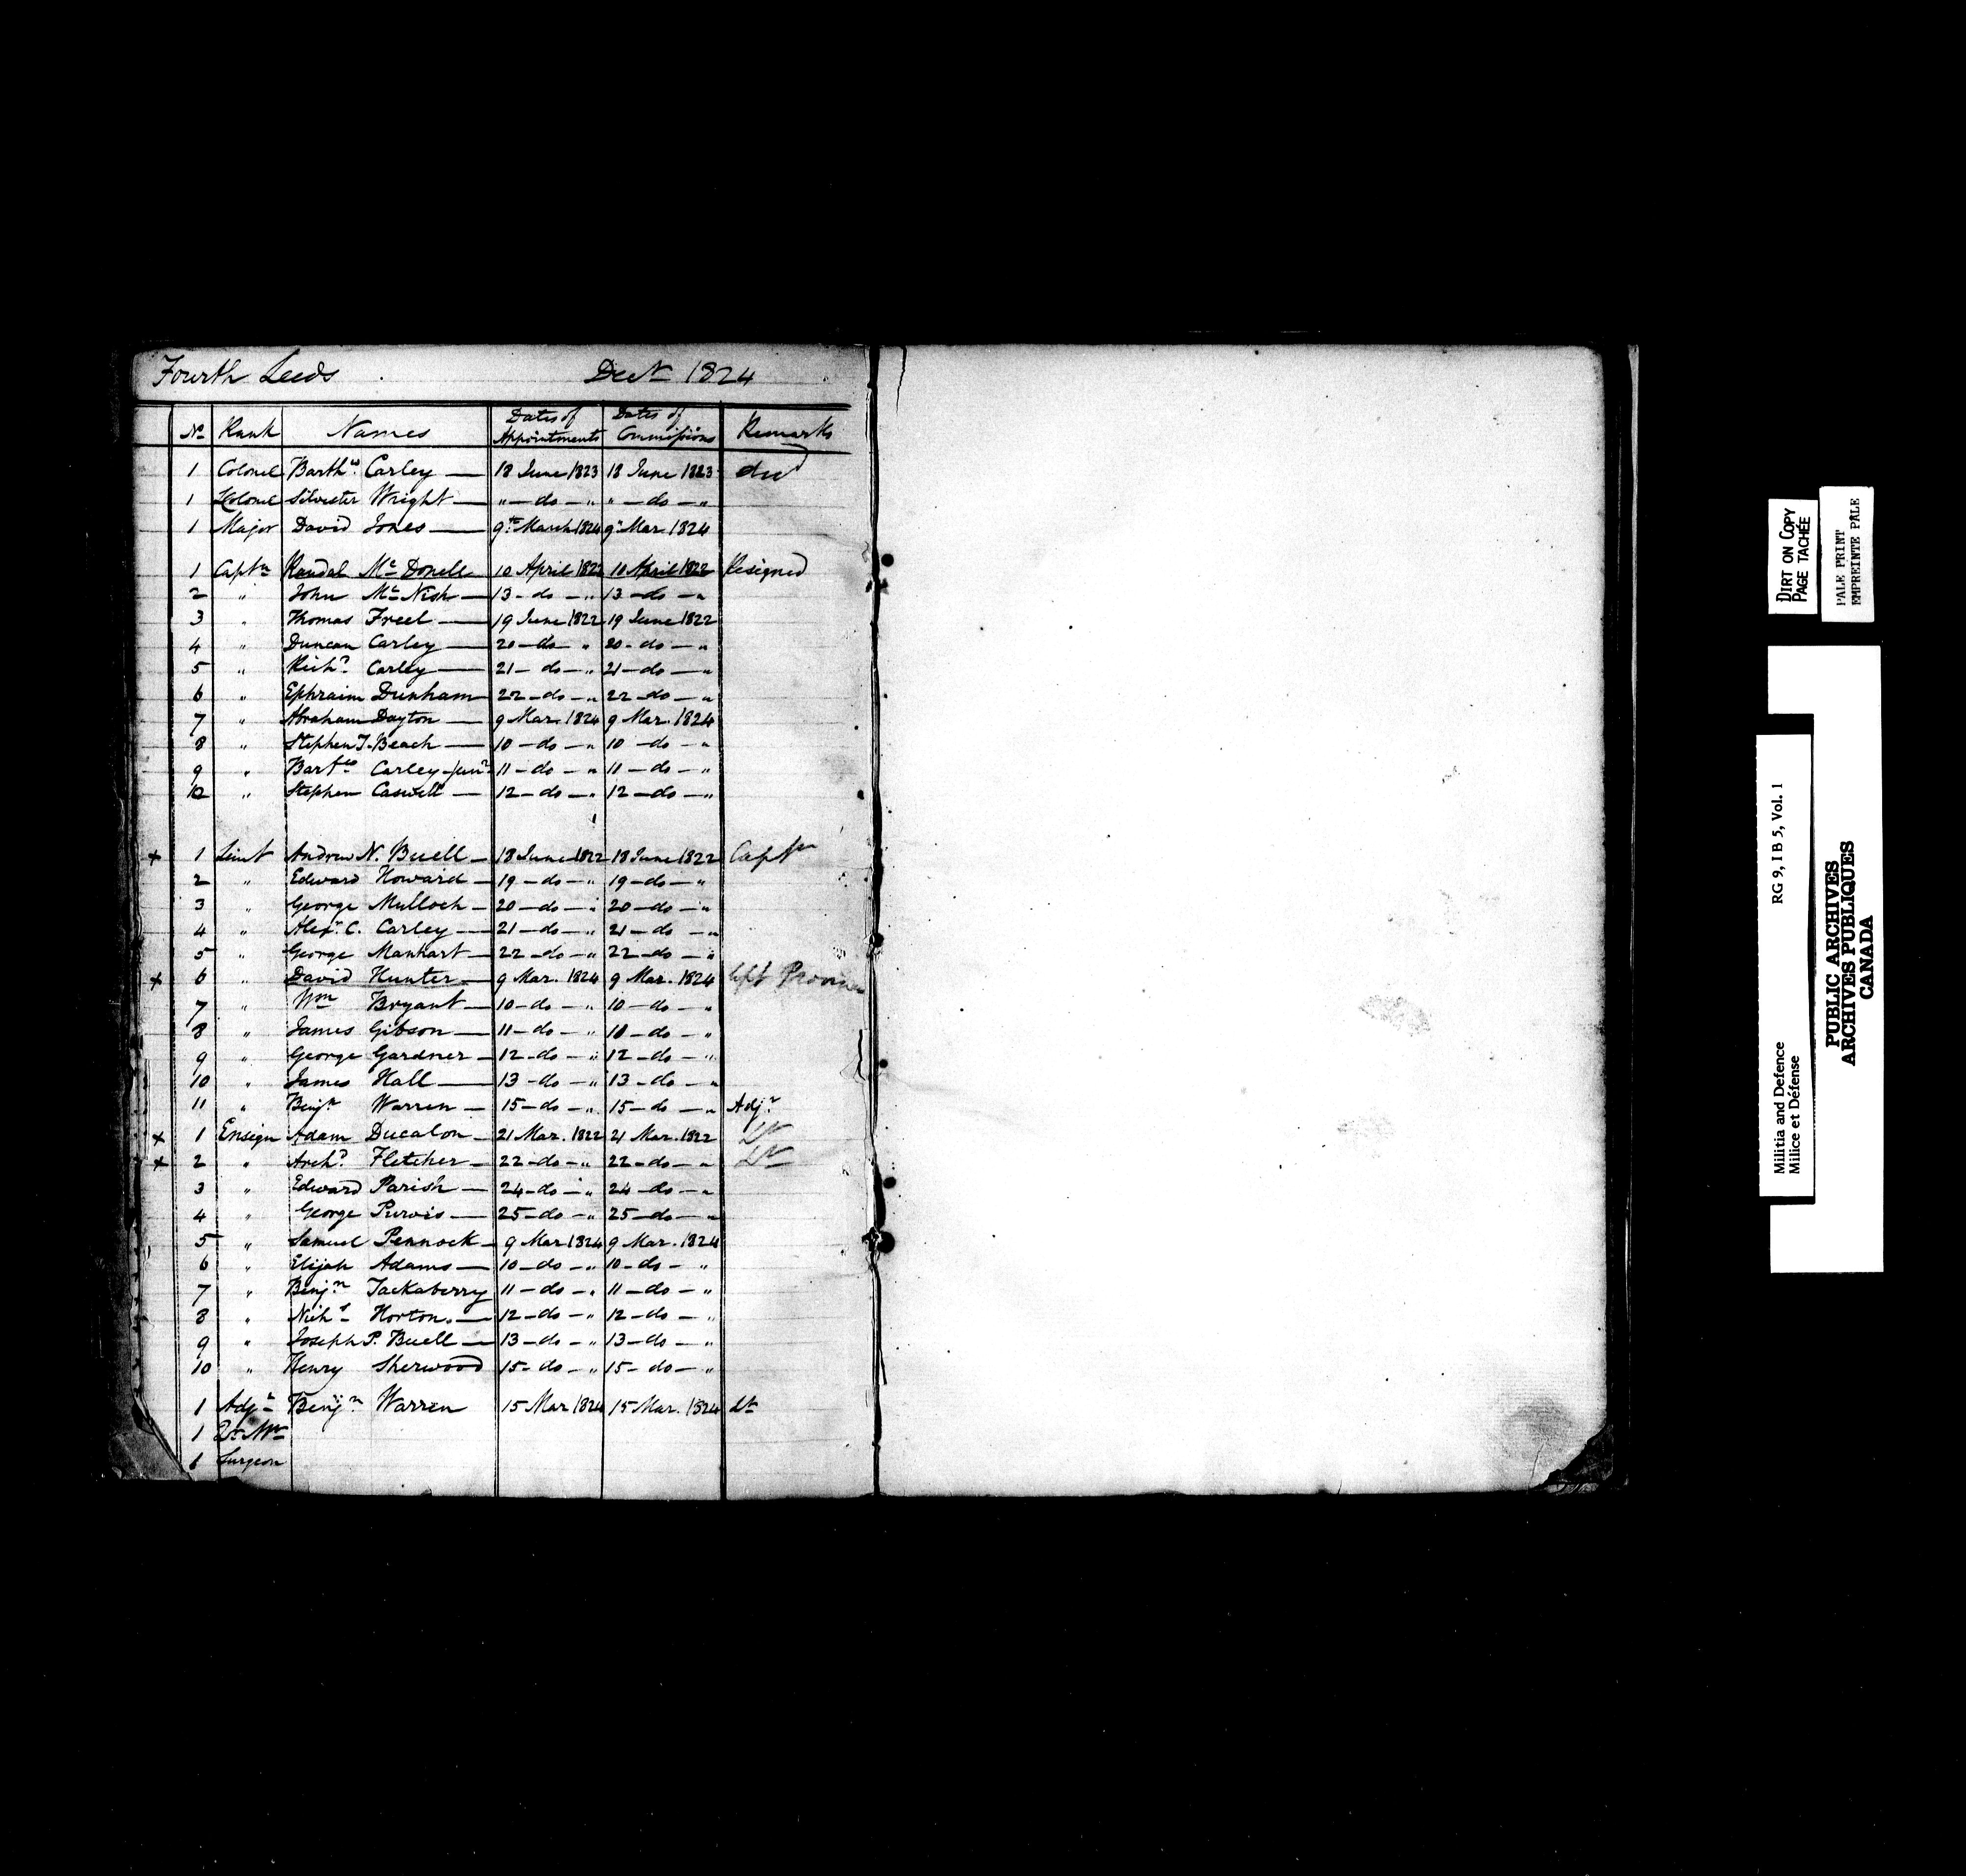 Fourth Leeds Decr 1824
No Rank Names Dates of Appointments Dates of Commissions Remarks
1 Colonel Barthw Carley — 18 June 1823 18 June 1823 dead
1 LColonel Silvester Wright — " — do — " " — do — "
1 Major David Jones — 9th March 1824 9" Mar. 1824
1 Captn Randal McDonell 10 April 1822 10 April 1822 Resigned
2 " John McNish — 13 - do — " 13 — do — "
3 " Thomas Freel — 19 June 1822 19 June 1822
4 " Duncan Carley — 20 — do — " 20 - do — "
5 " Richd Carley — 21 — do — " 21 — do — "
6 " Ephraim Dunham 22 — do — " 22 — do — "
7 " Abraham Dayton — 9 Mar. 1824 9 Mar. 1824
8 " Stephen T. Beach — 10 — do — " 10 — do — "
9 " Bartw Carley - junr 11 — do — " 11 — do — "
10 " Stephen Caswell — 12 — do — " 12 — do — "
+ 1 Lieut Andrew N. Buell — 18 June 1822 18 June 1822 Captn
2 " Edward Howard — 19 — do — " 19 — do — "
3 " George Mulloch — 20 — do — " 20 — do — "
4 " Alexr C. Carley — 21 — do — " 21 — do — "
5 " George Manhart — 22 — do — " 22 — do — "
+ 6 " David Hunter — 9 Mar. 1824 9 Mar. 1824 left Province
7 " Wm Bryant — 10 — do — " 10 — do — "
8 " James Gibson — 11 — do — " 11 — do — "
9 " George Gardner — 12 — do — " 12 — do — "
10 " James Hall — 13 — do — " 13 — do — "
11 " Benjn Warren — 15 — do — " 15 — do — " Adjt
+ 1 Ensign Adam Ducalon — 21 Mar. 1822 21 Mar. 1822 Lt
+ 2 " Archd Fletcher — 22 — do — " 22 — do — " Lt
3 " Edward Parish — 24 — do — " 24 — do — "
4 " George Purvis — 25 — do — " 25 — do — "
5 " Samuel Pennock — 9 Mar 1824 9 Mar. 1824
6 " Elijah Adams — 10 — do — " 10 — do — "
7 " Benjn Tackaberry 11 — do — " 11 — do — "
8 " Nichs Horton. — 12 — do — " 12 — do — "
9 " Joseph P. Buell — 13 — do — " 13 — do — "
10 " Henry Sherwood 15 — do — " 15 — do — "
1 Adjt Benjn Warren 15 Mar 1824 15 Mar. 1824 Lt
1 Qr Mr
1 Surgeon
DIRT ON COPY
PAGE TACHÉE
PALE PRINT
EMPREINTE PÂLE
Militia and Defence RG 9, I B 5, Vol. 1
Milice et Défense
PUBLIC ARCHIVES
ARCHIVES PUBLIQUES
CANADA